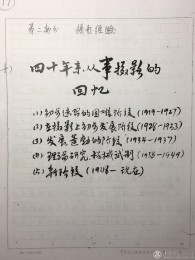 17
第二部分 摄影经验
四十年来从事摄影的
回忆
(1) 初步练习的困难阶段 (1919-1927)
(2) 在摄影上初步发展阶段 (1928-1933)
(3) 发展 的阶段 (1934-1937)
(4) 理论研究 试制 (1938-1949)
(5) 新阶段 (1948- 现在)